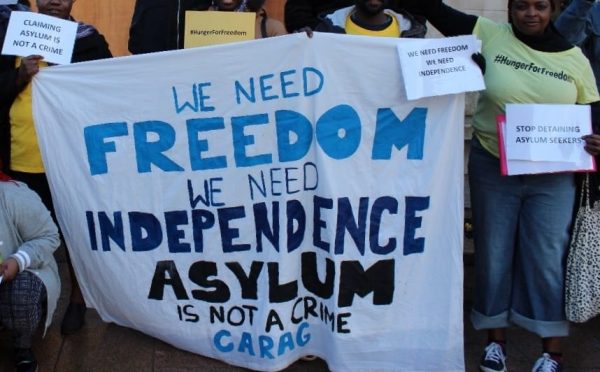 CLAIMING
ASYLUM IS
NOT A CRIME
#HungerForFreedom
WE NEED FREEDOM
WE NEED
INDEPENDENCE
#HungerForFreedom
STOP DETAINING
ASYLUM SEEKERS
WE NEED
FREEDOM
WE NEED
INDEPENDENCE
ASYLUM
IS NOT A CRIME
CARAG